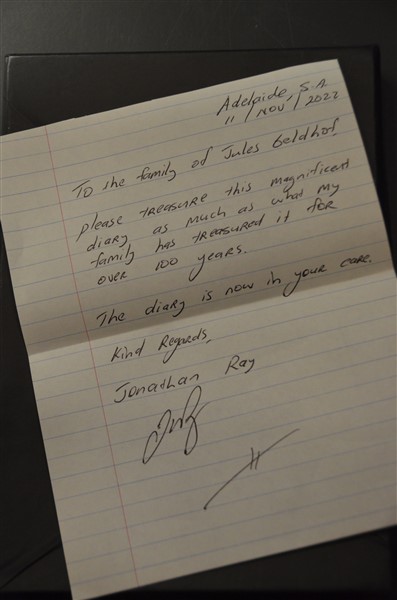 Adelaide, S.A
11 / NOV / 2022
To the family of Jules Geldhof,
please treasure this magnificent
diary as much as what my
family has treasured it for
over 100 years.
The diary is now in your care.
Kind Regards,
Jonathan Ray